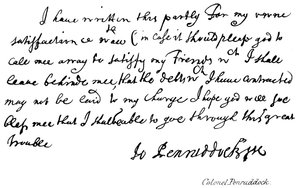 I have written this partly for my owne
satisfaction & now (in case it should please god to
call mee away to satisfy my friends wch I shall
leave behinde mee, that the debts wch I have contracted
may not be laid to my Charge I hope god will soe
bless mee that I shall be able to goe through this great
trouble
Jo Penruddock
Colonel Penruddock.